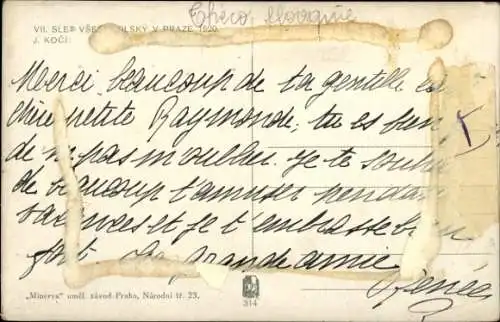 Tcheco Slovaquie
VII. SLET VŠESOKOLSKÝ V PRAZE 1920.
J. KOČÍ:
Merci beaucoup de ta gentille
chère petite Raymonde, tu es
de ne pas m'oublier. Je te
de beaucoup t'amuser pendant
vacances et je t'embrasse bien
fort. Ta grande amie
Renée
„Minerva" uměl. závod-Praha, Národní tř. 23.
314